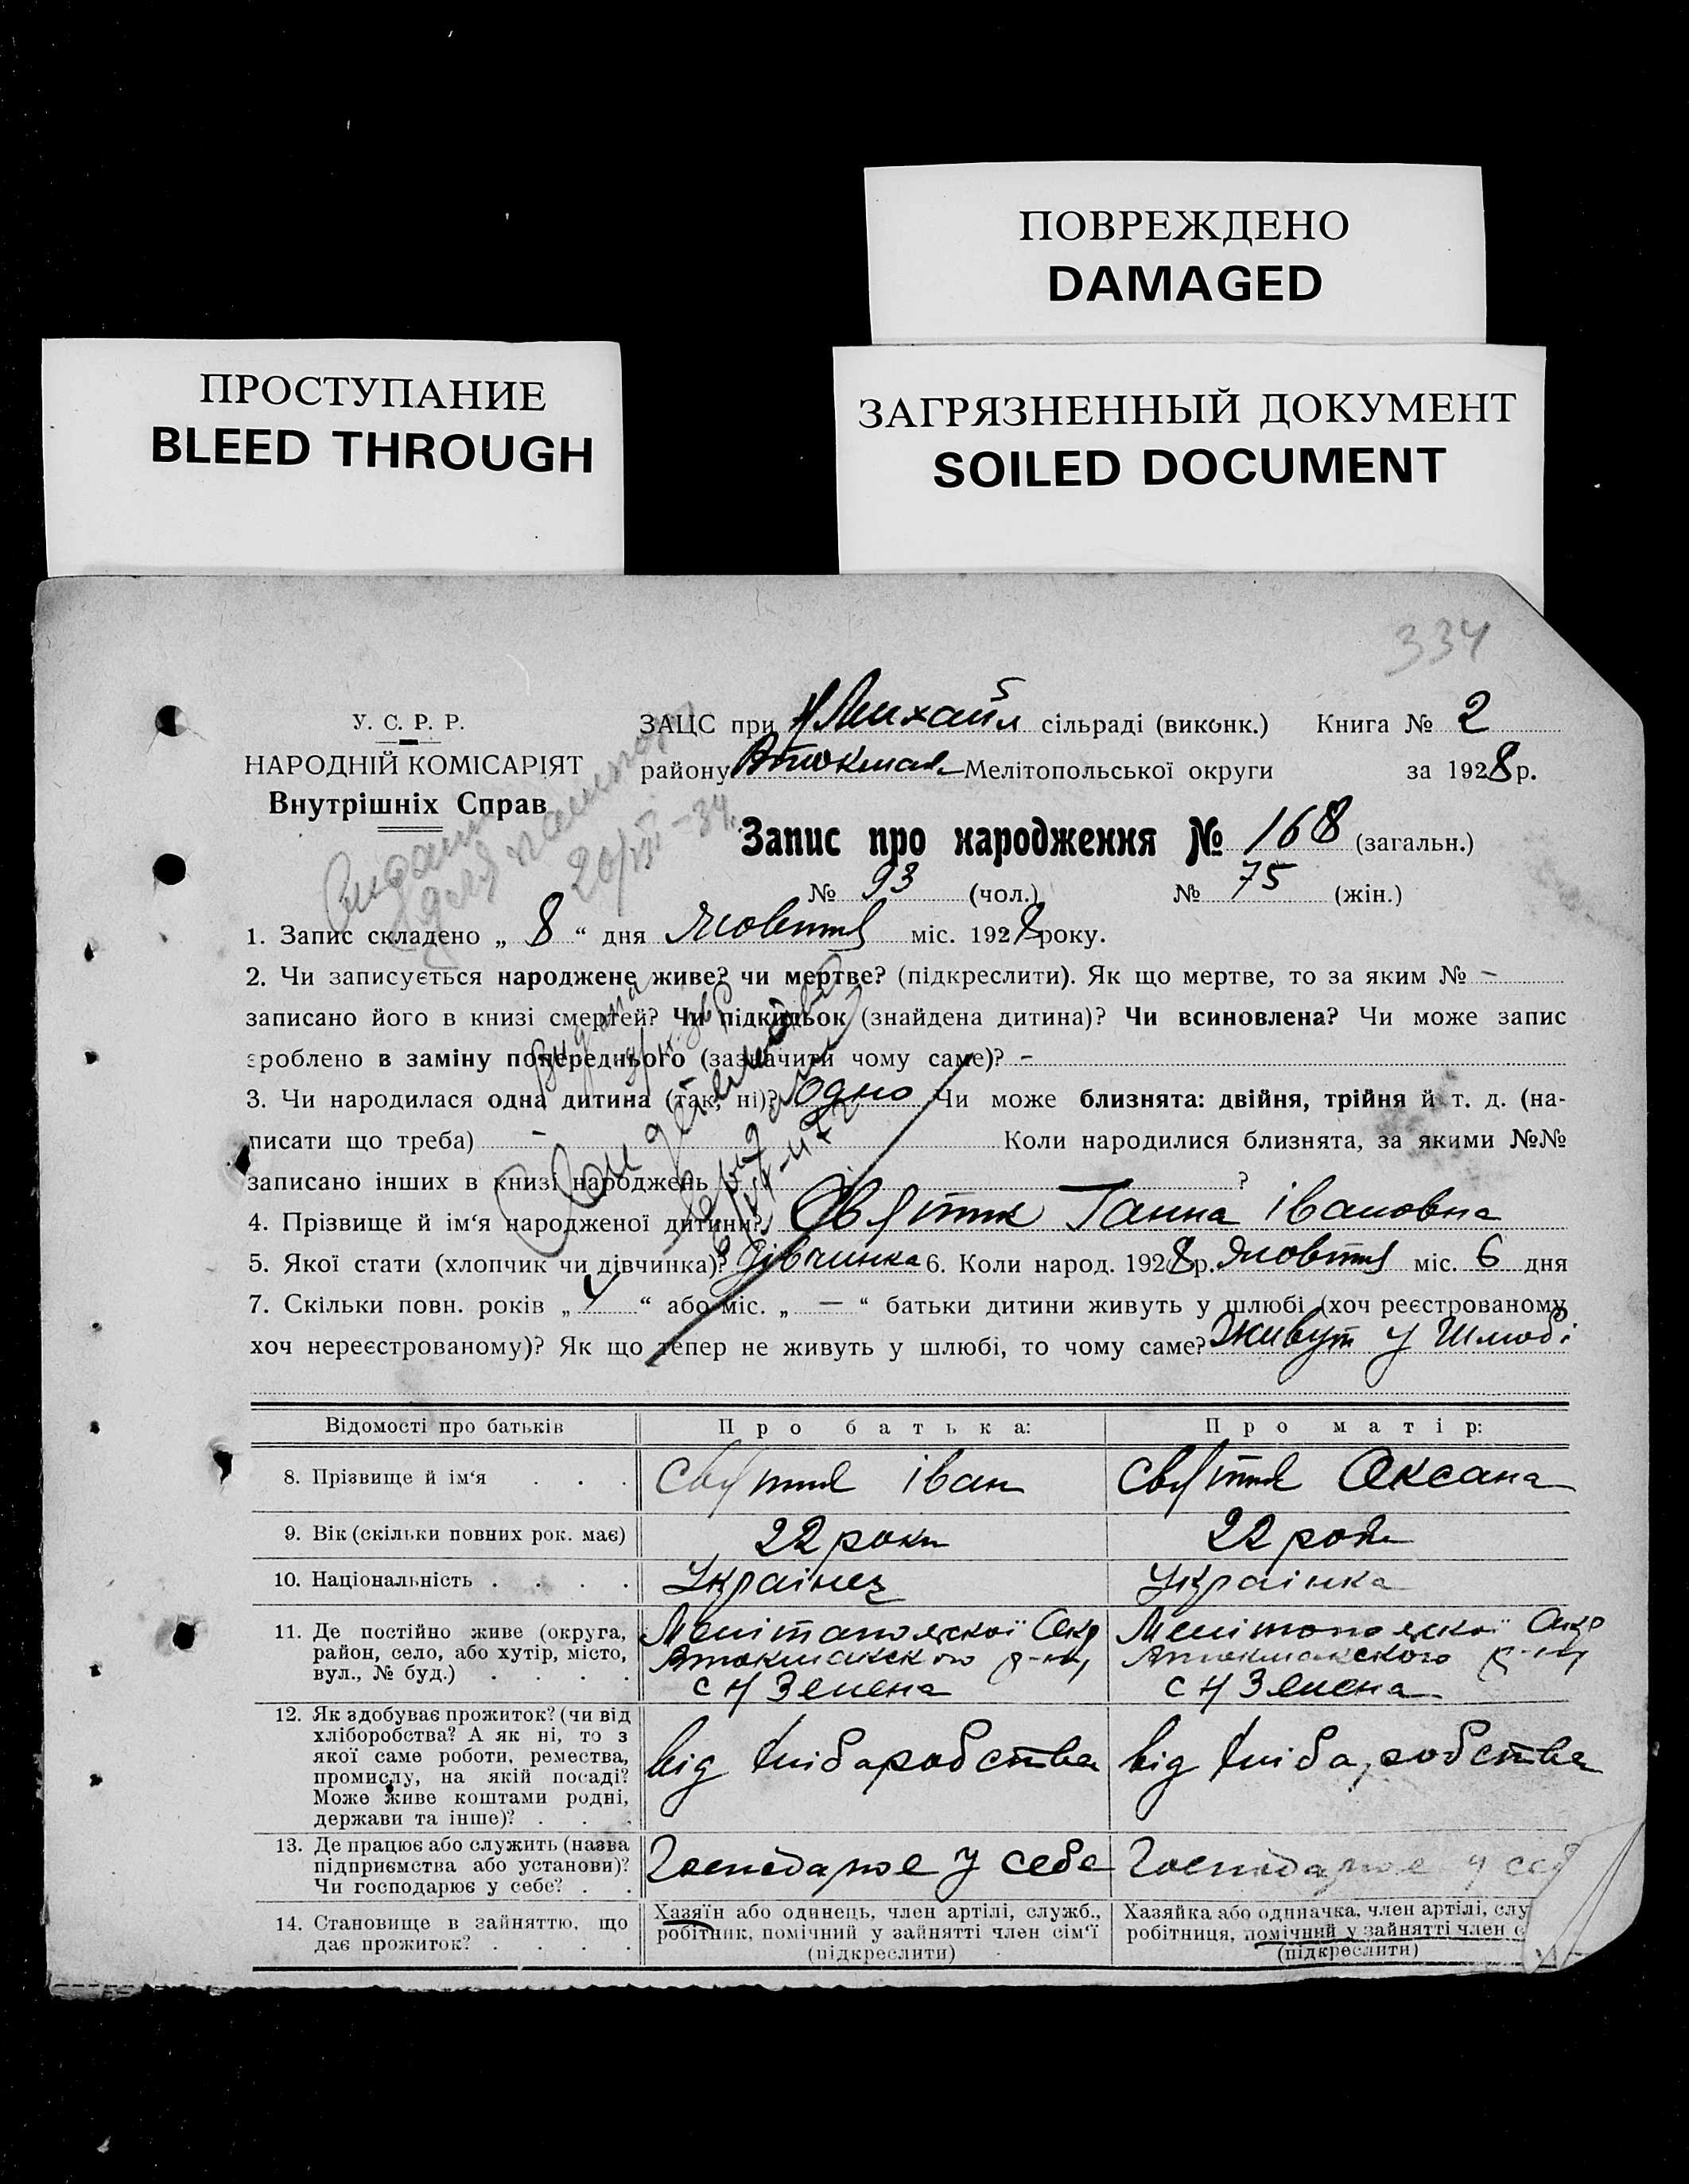 ПОВРЕЖДЕНО
DAMAGED
ПРОСТУПАНИЕ
BLEED THROUGH
ЗАГРЯЗНЕННЫЙ ДОКУМЕНТ
SOILED DOCUMENT
334
У. С. Р. Р.
НАРОДНІЙ КОМІСАРІЯТ
Внутрішніх Справ
ЗАЦС при Н Михайл сільраді (виконк.) Книга № 2
району Втокмак Мелітопольської округи за 1928 р.
20/VII-34
Запис про народження № 168 (загальн.)
№ 93 (чол.) № 75 (жін.)
1. Запис складено „ 8 “ дня Жовтня міс. 1928 року.
2. Чи записується народжене живе? чи мертве? (підкреслити). Як що мертве, то за яким № –
записано його в книзі смертей? Чи підкидьок (знайдена дитина)? Чи всиновлена? Чи може запис
зроблено в заміну попереднього (зазначити чому саме)? –
3. Чи народилася одна дитина (так, ні)? Одно Чи може близнята: двійня, трійня й т. д. (на-
писати що треба) – Коли народилися близнята, за якими №№
записано інших в книзі народжень – ?
4. Прізвище й ім‘я народженої дитини? Святик Ганна Івановна
5. Якої стати (хлопчик чи дівчинка)? Дівчинка 6. Коли народ. 1928 р. Жовтня міс. 6 дня
7. Скільки повн. років „ 4 “ або міс. „ — “ батьки дитини живуть у шлюбі (хоч реєстрованому
хоч нереєстрованому)? Як що тепер не живуть у шлюбі, то чому саме? Живут у Шлюбі
Відомості про батьків Про батька: Про матір:
8. Прізвище й ім‘я . . . Іван Оксана
9. Вік (скільки повних рок. має) 22 роки 22 роки
10. Національність . . . . Українец Українка
11. Де постійно живе (округа, район, село, або хутір, місто, вул., № буд.) . . . .
Мелітопольскої Окр Мелітопольскої Окр
Втокмакского р-ну Втокмакского р-ну
с Н Зелена с Н Зелена
12. Як здобуває прожиток? (чи від хліборобства? А як ні, то з якої саме роботи, ремества, промислу, на якій посаді? Може живе коштами родні, держави та інше)? . . .
від хлібаробства від хлібаробства
13. Де працює або служить (назва підприємства або установи)? Чи господарює у себе? . .
Господарює у себе Господарює у себ
14. Становище в зайняттю, що дає прожиток? . . . .
Хазяїн або одинець, член артілі, служб., робітник, помічний у зайнятті член сім‘ї (підкреслити)
Хазяйка або одиначка, член артілі, слу робітниця, помічний у зайнятті член с (підкреслити)